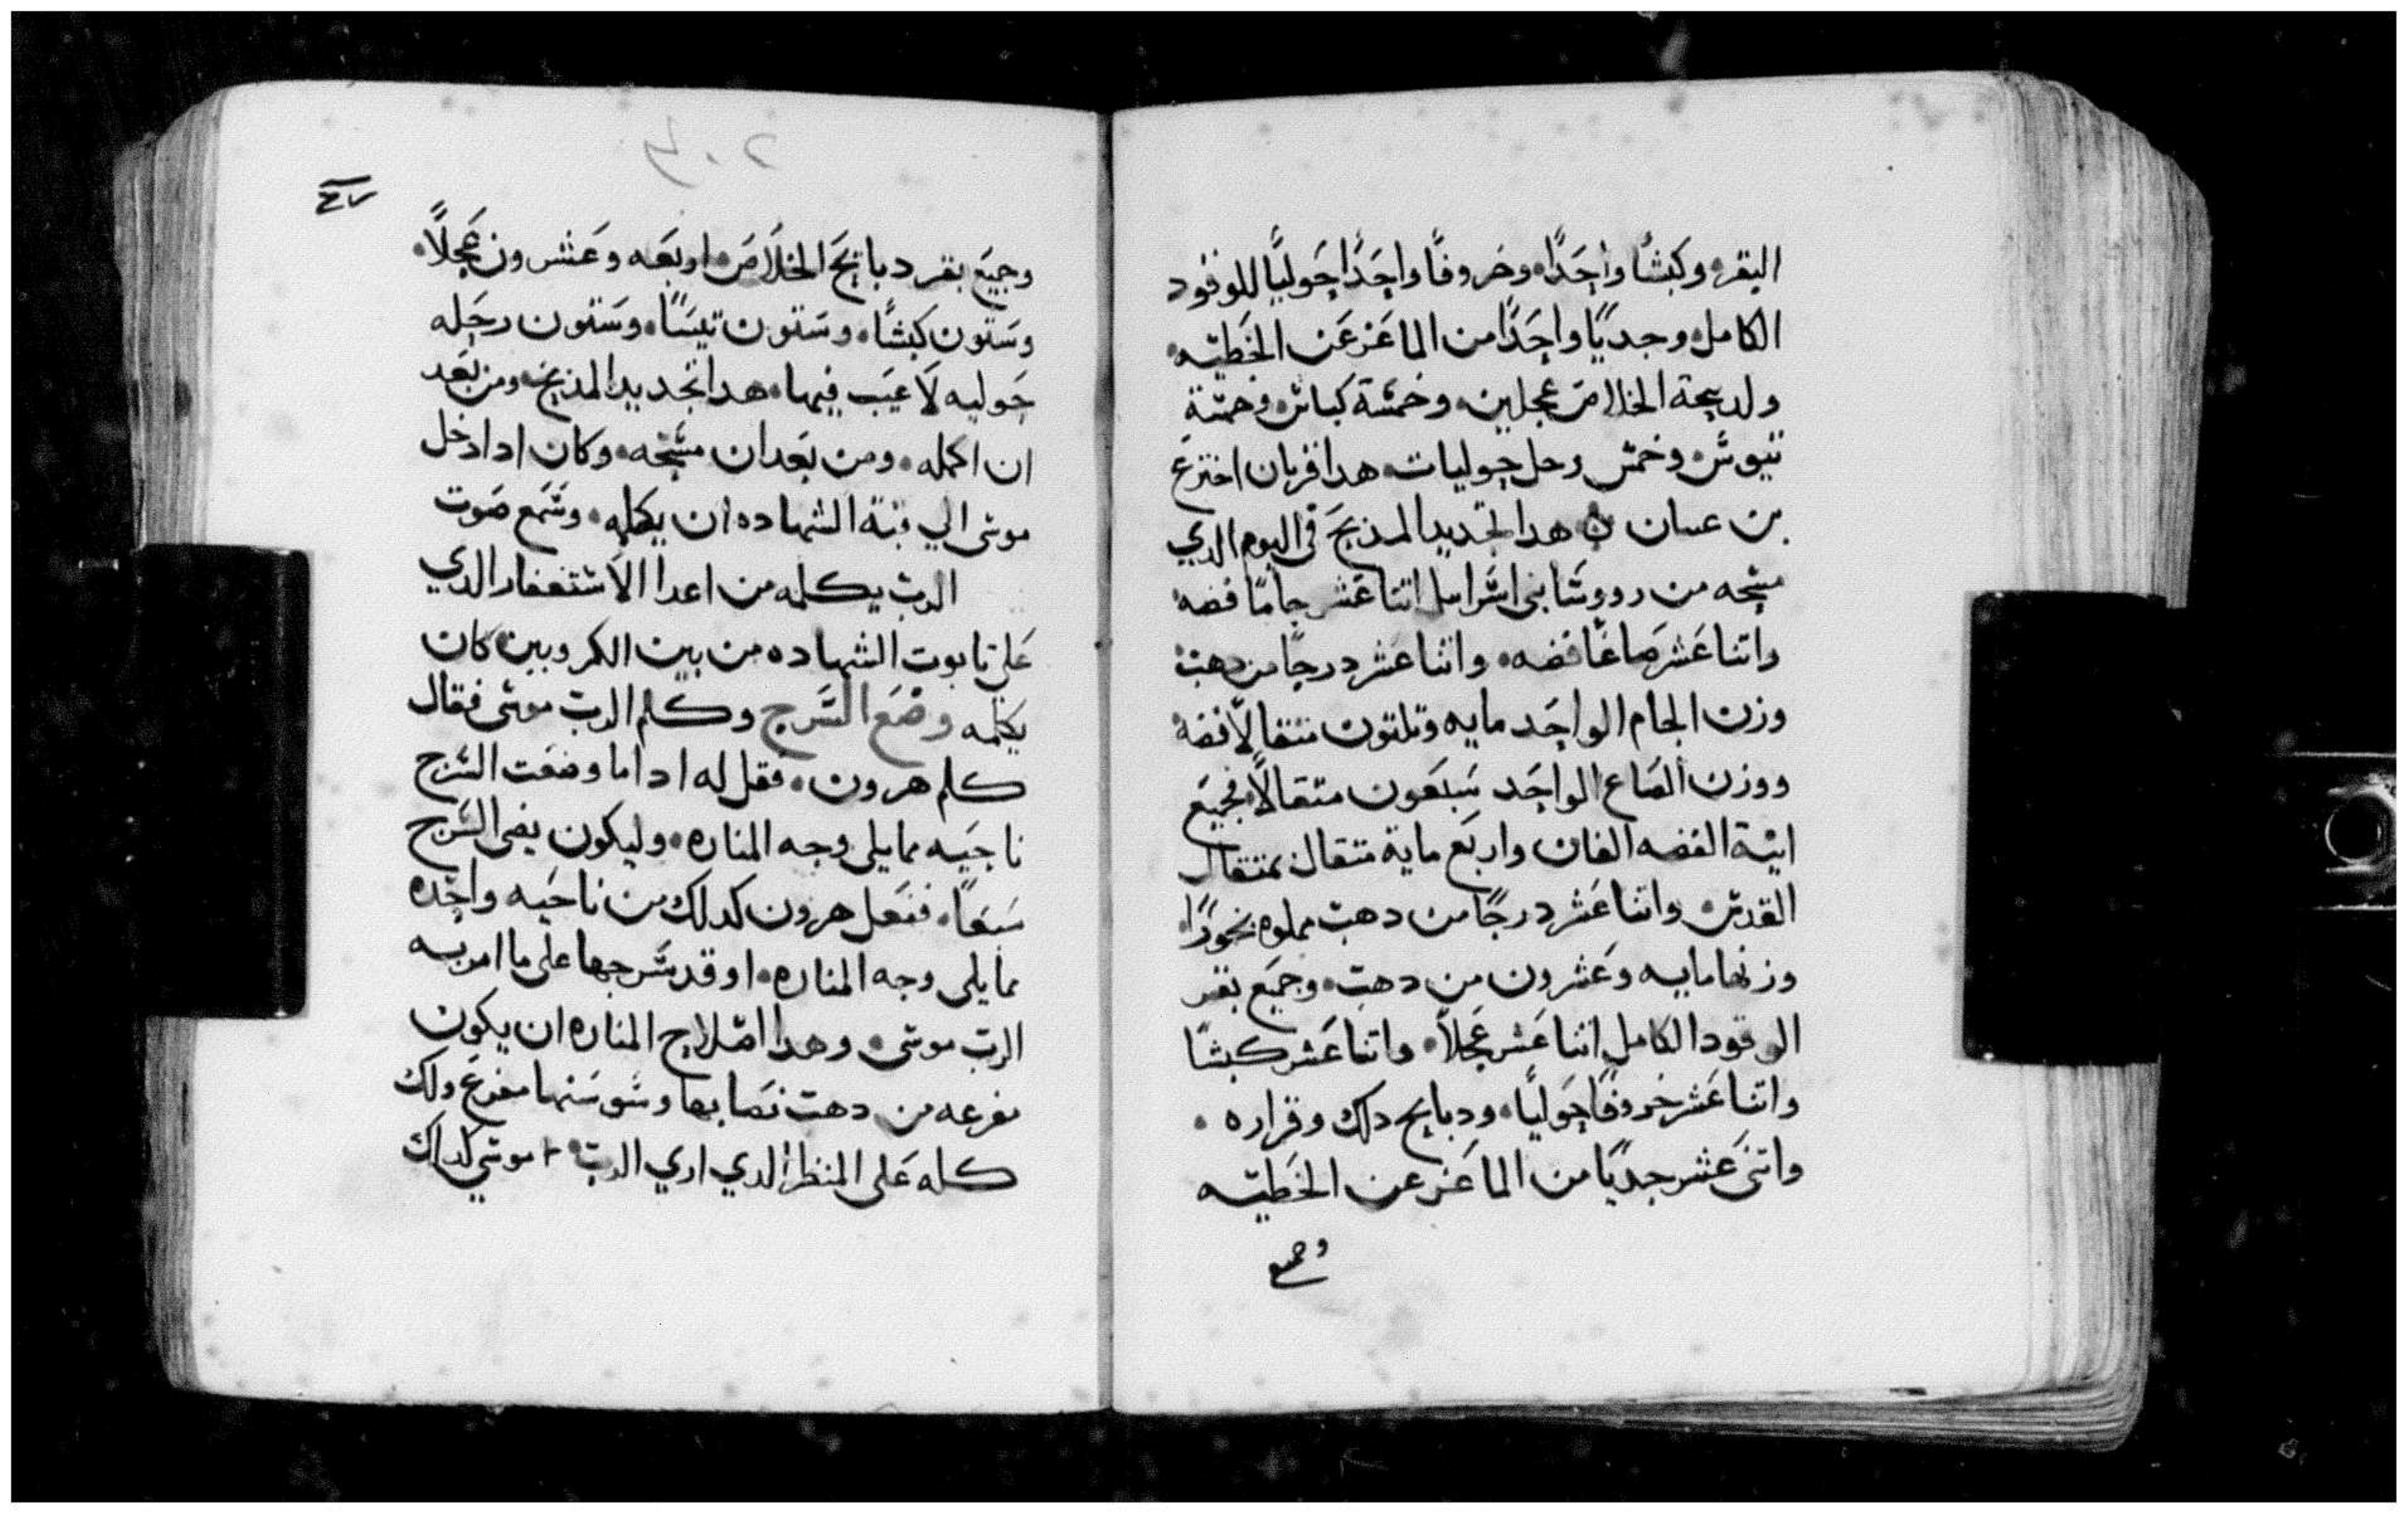 البقر. وكبشًا واحَدًا. وخروفًا واحَدًا حَوليًا للوقود
الكامل. وجديًا واحَدًا من الماعَز عَن الخَطيه.
ولدبيحة الخلاص عجلين. وخمسة كباش. وخمسة
تيوس. وخمس رحل حوليات. هدا قربان اخنزع
بن عسان هدا تجديد المذبحَ فى اليوم الدي
مسحه من رووسَا بنى اسَراىيل اتنا عَشر جامًا فضه
واتنا عَشر صاعًا فضه. واتنا عَشر درجًا من دهب
وزن الجام الواحَد مايه وتلتون متقالًا فضه
ووزن الصَاع الواحَد سَبعَون متقالًا فجميَع
انية الفضه الفان واربَع ماية متقال بمتقال
القدس. واتنا عَشر درجًا من دهب مملوه بخورًا.
وزنها مايه وعَشرون من دهب. وجميَع بقر
الوقود الكامل اتنا عَشر عَجلًا. واتنا عَشر كبشًا
واتنا عَشر خروفًا حَوليًا. ودبايح دلك وقراره.
واتنى عَشر جديًا من الماعَز عن الخَطيه
وجميع
وجميَع بقر دبايحَ الخلاصَ. اربعَه وعَشرون عَجلًا.
وسَتون كبشًا. وسَتون تيسًا. وسَتون رحَله
حَوليه لَا عيَب فيها. هدا تجديد المذبح. ومن بعَد
ان اكمله. ومن بعَد ان مسَحه. وكان ادا دخل
موسَى الي قبة الشهاده ان يكلمه. وسَمَع صَوت
الرب يكلمه من اعدا الاسَتغفار الدي
عَلى تابوت الشهاده من بين الكروبين كان
يكلمه وضعَ السَرج وكلم الرب موسَى فقال
كلم هرون. فقل له ادا ما وضعَت السَرج
ناحَيه مما يلى وجه المناره. وليكون يضى السَرج
سَبعًا. ففعَل هرون كدلك من ناحَيه واحَده
مما يلى وجه المناره. اوقد سَرجها على ما امر به
الرب موسَى. وهدا اصَلاح المناره ان يكون
مفرعه من دهب نصَابها وسَوسَنها مفرع ولك
كله عَلى المنظر الدي اري الرب موسَي كدلك